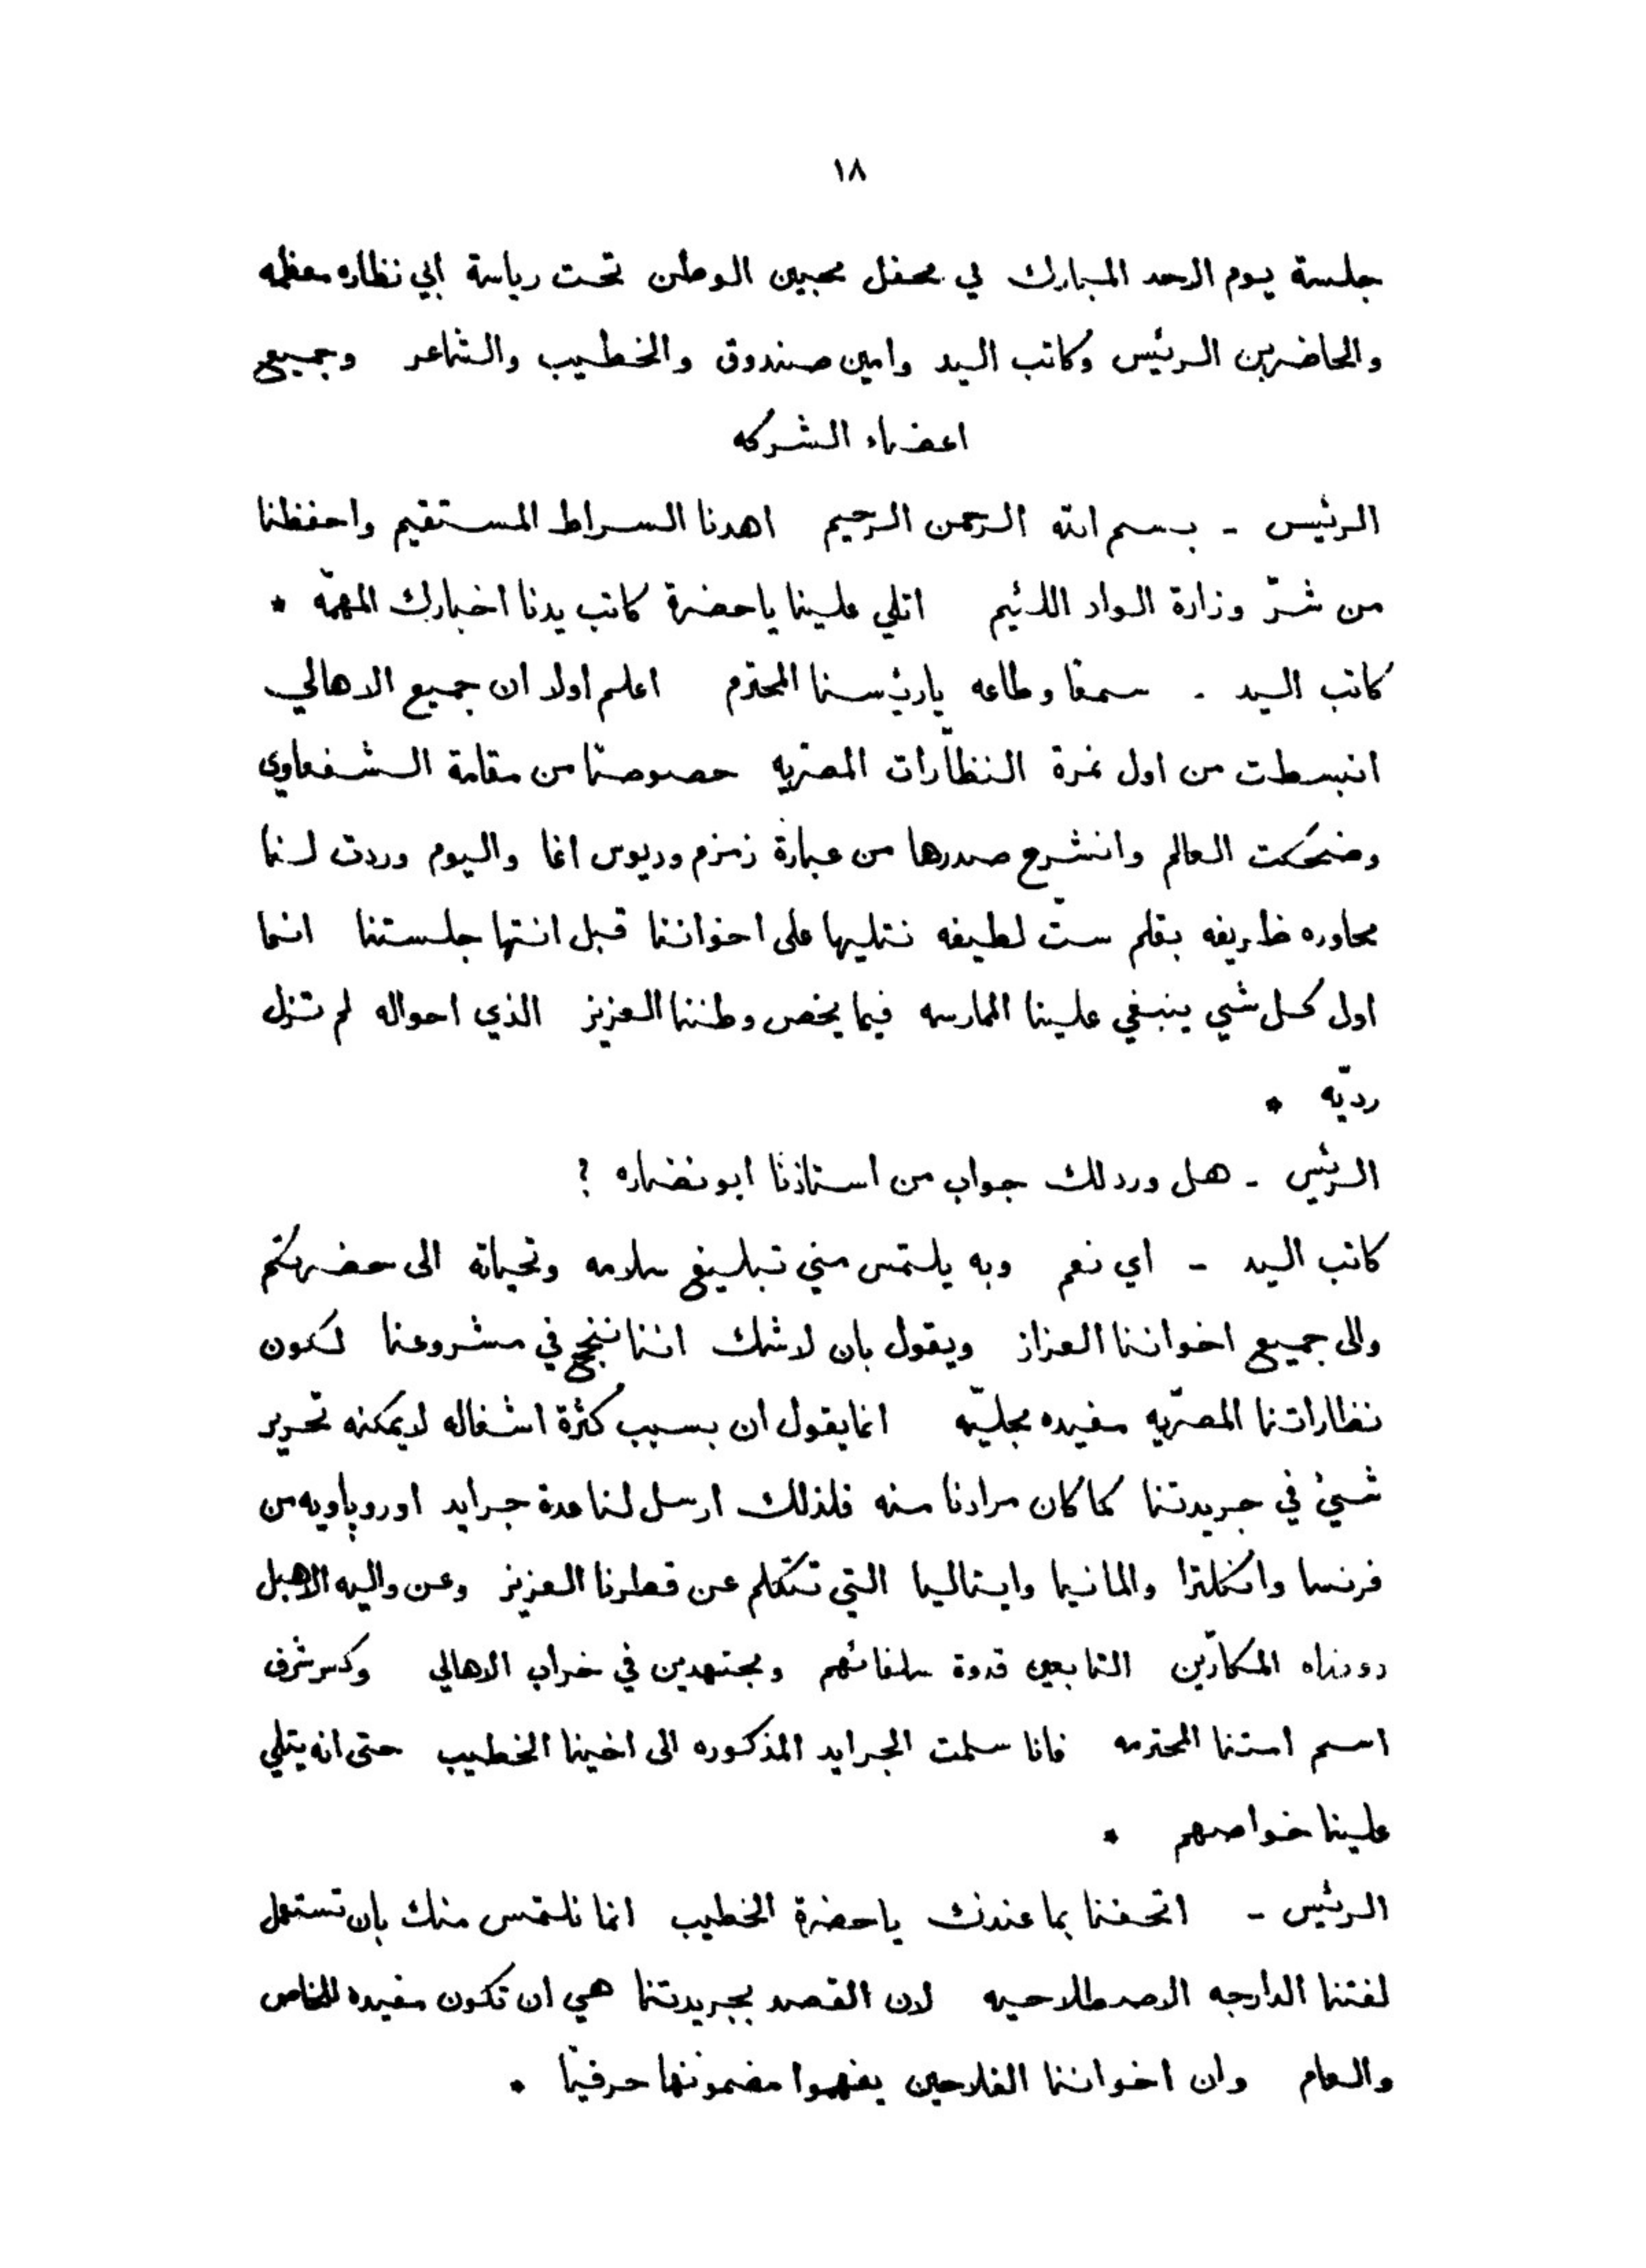 ١٨
جلسة يوم الاحد المبارك في محفل محبين الوطن تحت رياسة ابي نظاره معظمه
والحاضرين الرئيس وكاتب اليد وامين صندوق والخطيب والشاعر وجميع
اعضاء الشركه
الرئيس - بسم الله الرحمن الرحيم اهدنا السراط المستقيم واحفظنا
من شرّ وزارة الواد اللئيم اتلي علينا ياحضرة كاتب يدنا اخبارك المهمّه *
كاتب اليد - سمعًا وطاعه يارئسنا المحترم اعلم اولا ان جميع الاهالي
انبسطت من اول نمرة النظّارات المصريه حصوصًا من مقامة الشفعاوي
وضحكت العالم وانشرح صدرها من عبارة زمزم وديوس اغا واليوم وردت لنا
محاوره ظريفه بقلم ستّ لطيفه نتليها على اخواننا قبل انتها جلستنا انما
اول كل شي ينبغي علينا الممارسه فيما يخص وطننا العزيز الذي احواله لم تزل
رديّه *
الرئيس - هل ورد لك جواب من استاذنا ابو نضاره ?
كاتب اليد - اي نعم وبه يلتمس مني تبليغ سلامه وتحياته الى حضرتكم
والى جميع اخواننا العزاز ويقول بان لاشك اننا ننجح في مشروعنا لكون
نظاراتنا المصريّه مفيده مجليّه انما يقول ان بسبب كثرة اشغاله لا يمكنه تحرير
شيئ في جريدتنا كما كان مرادنا منه فلذلك ارسل لنا عدة جرايد اوروپاويه من
فرنسا وانكلترا والمانيا وايتاليا التي تتكلم عن قطرنا العزيز وعن واليه الاهبل
ووزراه المكّارين التابعين قدوة سلفائهم ومجتهدين في خراب الاهالي وكسر شرف
اسم امتنا المحترمه فانا سلمت الجرايد المذكوره الى اخينا الخطيب حتى انه يتلي
علينا خواصهم *
الرئيس - اتحفنا بما عندك ياحضرة الخطيب انما نلتمس منك بان تستعمل
لغتنا الدارجه الاصطلاحيه لان القصد بجريدتنا هي ان تكون مفيده للخاص
والعام وان اخواننا الفلاحين يفهموا مضمونها حرفيًا *